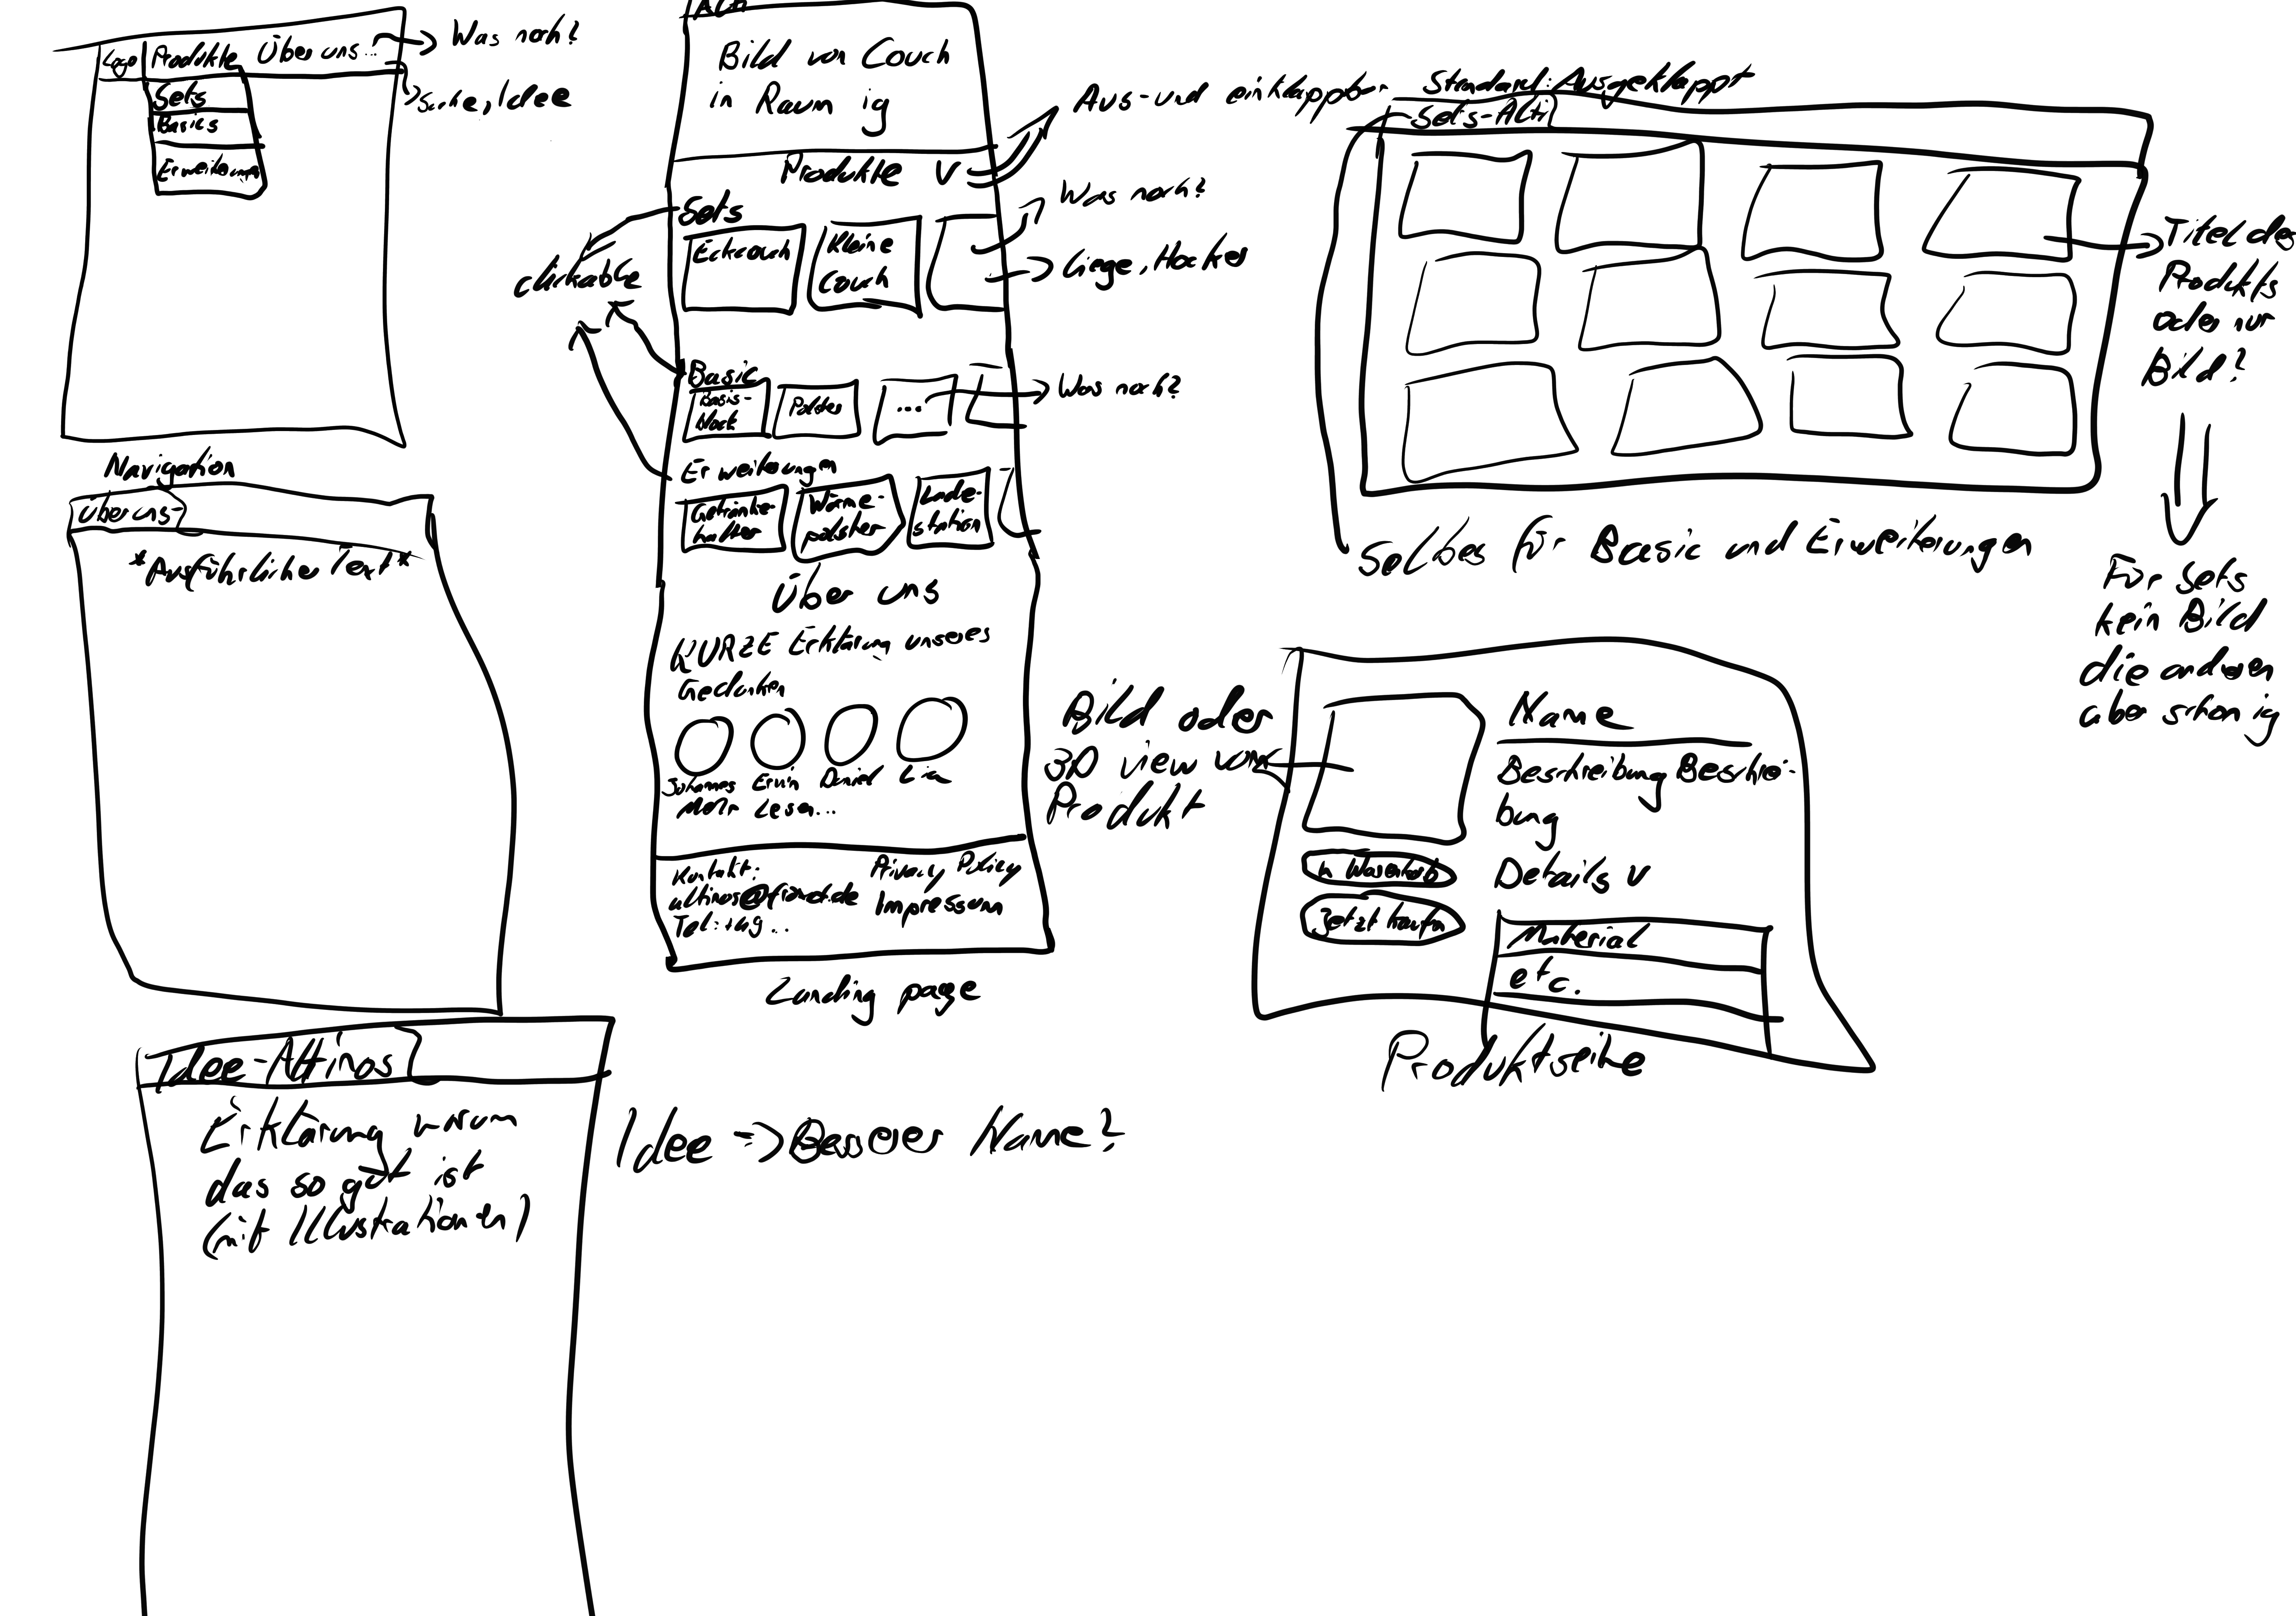 Logo Produkte Über uns...
Was noch?
Suche, Idee
Sets
Basics
Erweiterungen
Navigation
Über uns-
*Ausführlicher Text*
Idee-Altinos
Erklärung warum
das so gut ist
(mit Illustrationen)
Idee => Besserer Name?
Bild von Couch
in Raum ig
Produkte v
Aus- und einklappbar
Standard: Ausgeklappt
Sets
clickable
Eckcouch
Kleine
Couch
Was noch?
Liege, Hocker
Basic
Basis-
block
Polster
...
Was noch?
Erweiterungen
Getränke-
halter
Wärme-
polster
Lade-
station
Über uns
KURZE Erklärung unseres
Gedanken
Johannes Erwin Daniel Lia
Mehr Lesen...
Kontakt:
altinos@framot.de
Tel.: +49...
Privacy Policy
Impressum
Landing page
Sets-Alti
Titel des
Produkts
oder nur
Bild?
Für Sets
kein Bild
die anderen
aber schon ig
Selbes für Basic und Erweiterungen
Bild oder
3D view vom
Produkt
Name
Beschreibung Beschrei-
bung
In Warenkorb
Jetzt kaufen
Details v
Material
etc.
Produktseite